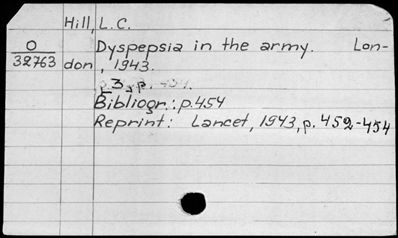 Hill, L.C.
O Dyspepsia in the army. Lon-
32763 don, 1943.
3 p.
Bibliogr.: p.454
Reprint: Lancet, 1943, p. 452-454